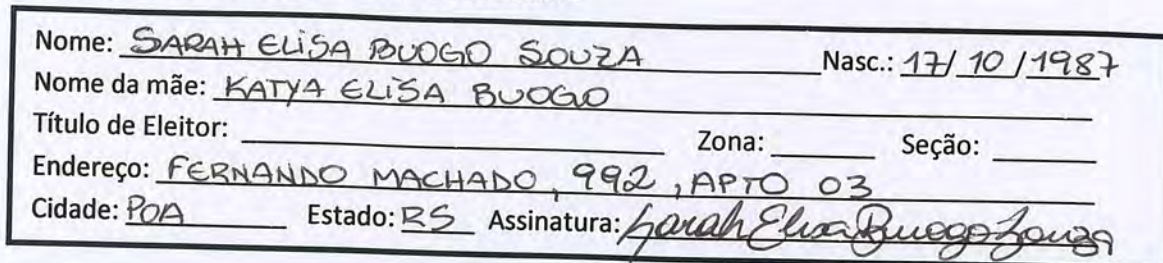 Nome: SARAH ELISA BUOGO SOUZA Nasc.: 17/ 10 /1987
Nome da mãe: KATYA ELISA BUOGO
Título de Eleitor: Zona: Seção:
Endereço: FERNANDO MACHADO, 992, APTO 03
Cidade: POA Estado: RS Assinatura: Sarah Elisa Buogo Souza